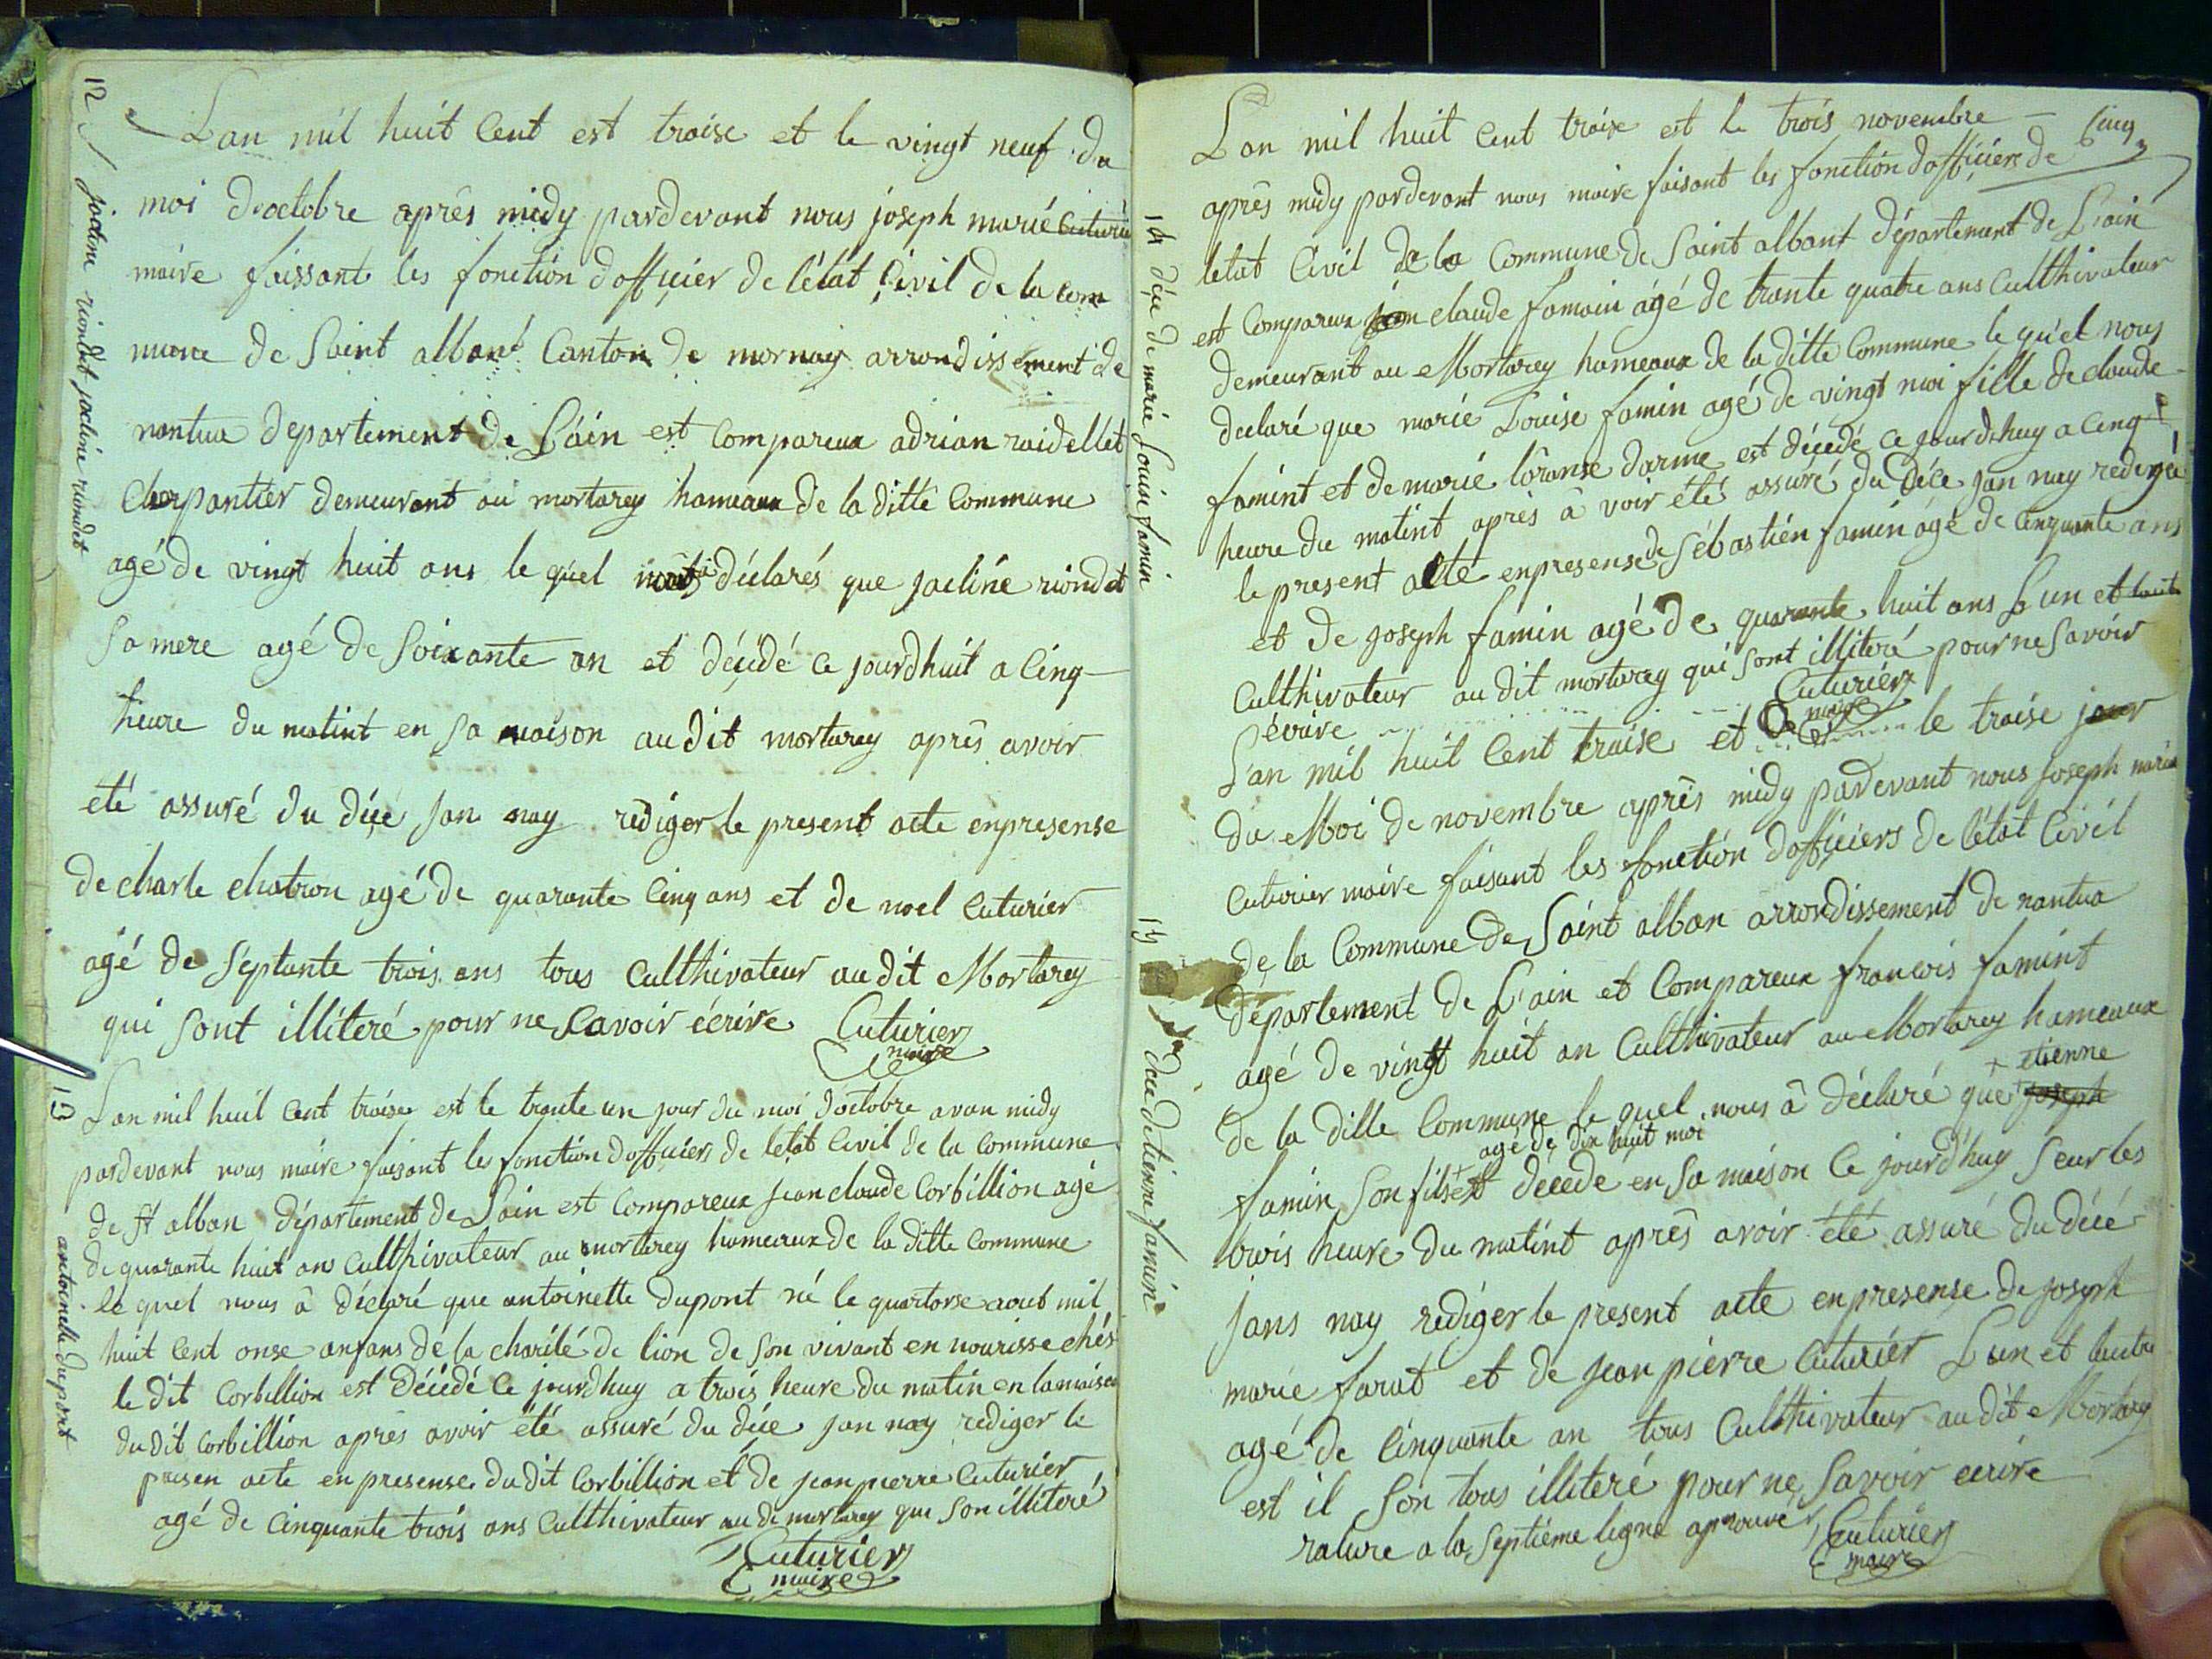 12
jacline riondet jacline riondet
Lan mil huit Cent est traise et le vingt neuf du
moi doctobre après midy pardevant nous joseph marié Cuturier
maire faissant les fonction dofficier de létat Civil de la com
mune de Saint albant Canton de mornay arrondissement de
nantua departement de Láin est Compareux adrian raidellet
Charpantier demeurant au mortarey hameaux de la ditte Commune
agé de vingt huit ans le quel nous à déclarés que jacline riondet
Sa mere agé de Soixante an et décédé ce jourdhuit a Cinq
heure du matint en Sa maison audit mortarey après avoir
eté assuré du décé jan nay rediger le present acte enpresense
de charle chatron agé de quarante Cinq ans et de noel Cuturier
agé de Septante trois ans tous Culthivateur au dit Mortarey
qui Sont illiteré pour ne Savoir écrire Cuturier
maire
13
antoinette dupont
Lan mil huit Cent traise est le trante un jour du moi doctobre avan midy
pardevant nous maire faisant les fonction dofficiers de letat Civil de la Commune
de st alban département de Lain est Compareux jean claude Corbillion agé
de quarante huit ans Culthivateur au mortarey hameaux de la ditte Commune
le quel nous à déclaré que antoinette dupont né le quartorse aout mil
huit Cent onse anfans de la charité de lion de Son vivant en nourisse chés
le dit Corbillion est Décédé Ce jourdhuy a trois heure du matin en la maison
du dit Corbillion après avoir été assuré du déce jan nay rediger le
presen acte en presense du dit Corbillion et de jean pierre Cuturier
agé de Cinquante trois ans Culthivateur au di mortarey qui Son illiteré
Cuturier
maire
Cinq
14 déce de marie Louise famin
Lan mil huit Cent traixe est le trois novembre
après midy pardevant nous maire faisant les fonction dofficiere de
letat Civil de la Commune de Saint albant département de Lain
est Compareux jean claude famain ágé de trante quatre ans Culthivateur
demeurant au Mortarey hameaux de la ditte Commune le quel nous
declaré que marie Louise famin agé de vingt moi fille de claude
famint et de marié lôranse darme est décedé ce jourdhuy a Cinq
heure du matint après à voir été assuré du Déce jan nay redergé
le present acte enpresense de Sébastién famin ágé de Cinquante ans
et de joseph famin agé de quarante huit ans Lun et lautre
Culthivateur au dit mortarey qui Sont illiteré pour ne Savoir
écrire Cuturier
maire
15
déce detienne famin
Lan mil huit Cent traise et le traise jour
du Moi de novembre après midy pardevant nous Joseph marie
Cuturier maire faisant les fonction dofficiers de létat Civil
de la Commune de Saint alban arrondissement de nantua
département de Lain et Compareux francois famint
agé de vingt huit an Culthivateur au Mortarey hameaux
de la ditte Commune le quel nous à déclaré que + etienne joseph
famin Son fils + agé de dix huit moi est décedé en Sa maison Ce jourdhuy Seur les
trois heure du matint après avoir été assuré du décé
jans nay rediger le present acte enpresense de joseph
marie farat et de jean pierre Cuturiér Lun et lautre
agé de Cinquante an tous Culthivateur audit Mortarey
est il Son tous illiteré pour ne Savoir ecrire
rature a la Septiéme ligne aprouvé Cuturier
maire